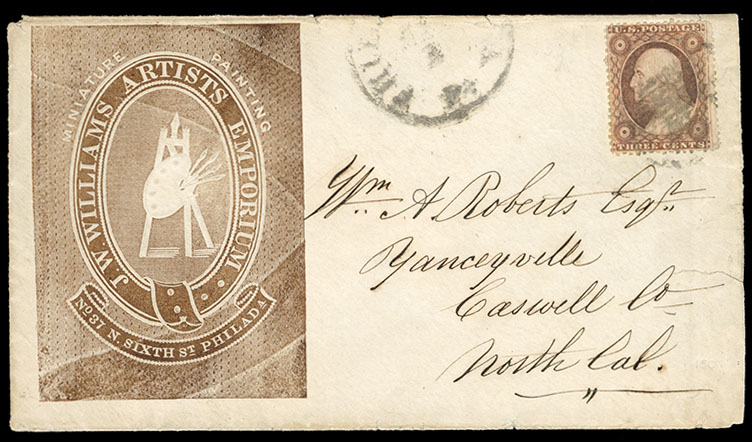 MINIATURE PAINTING
J W WILLIAMS ARTISTS EMPORIUM
No 37 N. SIXTH ST PHILADA
U.S. POSTAGE
THREE CENTS
Wm. A. Roberts Esqr.
Yanceyville
Caswell Co
North Cal.